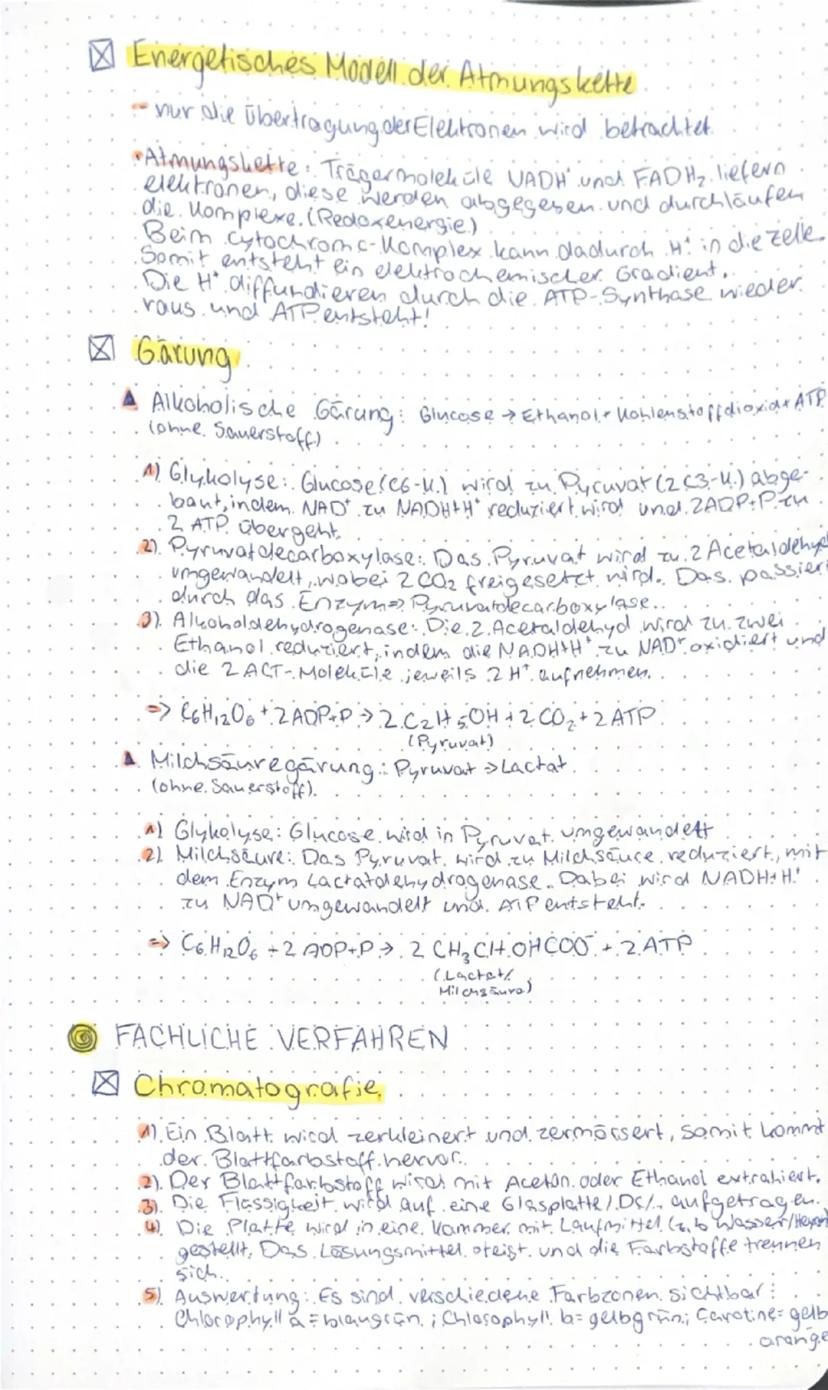 Energetisches Modell der Atmungskette
- nur die Übertragung der Elektronen wird betrachtet
• Atmungskette: Trägermoleküle NADH⁺ und FADH₂ liefern
elektronen, diese werden abgegeben und durchlaufen
die Komplexe. (Redoxenergie)
Beim Cytochrom c-Komplex kann dadurch H⁺ in die Zelle.
Somit entsteht ein elektrochemischer Gradient.
Die H⁺ diffundieren durch die ATP-Synthase wieder
raus und ATP entsteht!
Gärung
Alkoholische Gärung: Glucose → Ethanol + Kohlenstoffdioxid + ATP
(ohne Sauerstoff)
1) Glykolyse: Glucose (C6-K.) wird zu Pyruvat (2 C3-K.) abge-
baut, indem NAD⁺ zu NADH+H⁺ reduziert wird und 2ADP+P zu
2 ATP übergeht.
2) Pyruvatdecarboxylase: Das Pyruvat wird zu 2 Acetaldehyd
umgewandelt, wobei 2 CO₂ freigesetzt wird. Das passiert
durch das Enzym => Pyruvatdecarboxylase.
3) Alkoholdehydrogenase: Die 2 Acetaldehyd wird zu zwei
Ethanol reduziert, indem die NADH+H⁺ zu NAD⁺ oxidiert und
die 2 ACT-Moleküle jeweils 2 H⁺ aufnehmen.
=> C₆H₁₂O₆ + 2ADP+P → 2 C₂H₅OH + 2 CO₂ + 2 ATP
(Pyruvat)
Milchsäuregärung: Pyruvat → Lactat
(ohne Sauerstoff)
1) Glykolyse: Glucose wird in Pyruvat umgewandelt
2) Milchsäure: Das Pyruvat wird zu Milchsäure reduziert, mit
dem Enzym Lactatdehydrogenase. Dabei wird NADH+H⁺
zu NAD⁺ umgewandelt und ATP entsteht.
=> C₆H₁₂O₆ + 2 ADP+P → 2 CH₃CHOHCOO⁻ + 2 ATP
(Lactat/
Milchsäure)
FACHLICHE VERFAHREN
Chromatografie
1) Ein Blatt wird zerkleinert und zermörsert, somit kommt
der Blattfarbstoff hervor.
2) Der Blattfarbstoff wird mit Aceton oder Ethanol extrahiert.
3) Die Flüssigkeit wird auf eine Glasplatte/DC/ aufgetragen.
4) Die Platte wird in eine Kammer mit Laufmittel (z.b Wasser/Hexan)
gestellt. Das Lösungsmittel steigt und die Farbstoffe trennen
sich.
5) Auswertung: Es sind verschiedene Farbzonen sichtbar:
Chlorophyll a = blaugrün; Chlorophyll b = gelbgrün; Carotine = gelb
orange